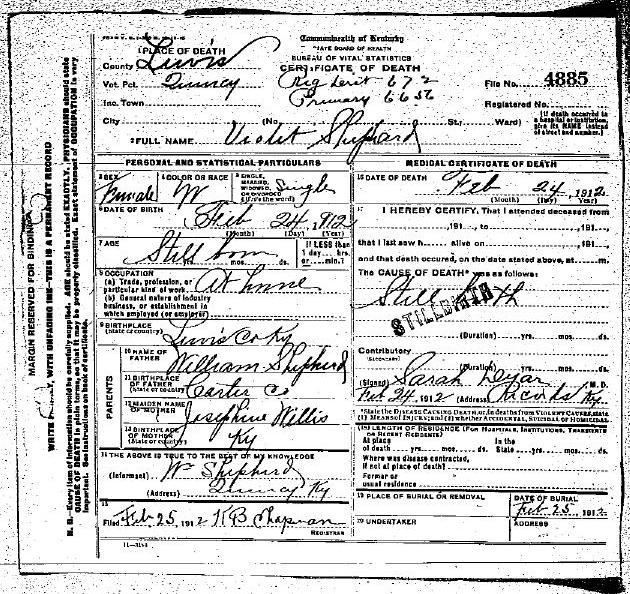 Commonwealth of Kentucky
STATE BOARD OF HEALTH
BUREAU OF VITAL STATISTICS
CERTIFICATE OF DEATH
1 PLACE OF DEATH
County Lewis
Vot. Pct. Quincy
Reg Distt 672
File No. 4885
Inc. Town
Primary 6656
Registered No.
City (No. St., Ward)
(If death occurred in a hospital or institution, give its NAME instead of street and number.)
2 FULL NAME Violet Shepherd
PERSONAL AND STATISTICAL PARTICULARS
3 SEX Female
4 COLOR OR RACE W
5 SINGLE, MARRIED, WIDOWED, OR DIVORCED (Write the word) Single
6 DATE OF BIRTH Feb 24, 1912
(Month) (Day) (Year)
7 AGE Still born
yrs. mos. ds.
If LESS than 1 day... hrs. or... min.?
8 OCCUPATION
(a) Trade, profession, or particular kind of work At home
(b) General nature of industry business, or establishment in which employed (or employer)
9 BIRTHPLACE
(State or country) Lewis Co Ky
PARENTS
10 NAME OF FATHER William Shepherd
11 BIRTHPLACE OF FATHER (State or country) Carter Co
12 MAIDEN NAME OF MOTHER Josephine Willis
13 BIRTHPLACE OF MOTHER (State or country) Ky
14 THE ABOVE IS TRUE TO THE BEST OF MY KNOWLEDGE
(Informant) Wm Shepherd
(Address) Quincy Ky
15
Filed Feb 25, 1912 KB Chapman
REGISTRAR
MEDICAL CERTIFICATE OF DEATH
16 DATE OF DEATH Feb 24, 1912
(Month) (Day) (Year)
17 I HEREBY CERTIFY, That I attended deceased from
191 , to 191 ,
that I last saw h alive on 191 ,
and that death occurred, on the date stated above, at m.
The CAUSE OF DEATH* was as follows:
Still Birth
STILLBIRTH
(Duration) yrs. mos. ds.
Contributory
(SECONDARY)
(Duration) yrs. mos. ds.
(Signed) Sarah M.D.
Feb 24, 1912 (Address) Ky
*State the DISEASE CAUSING DEATH, or, in deaths from VIOLENT CAUSES, state (1) MEANS OF INJURY; and (2) whether ACCIDENTAL, SUICIDAL or HOMICIDAL.
18 LENGTH OF RESIDENCE (FOR HOSPITALS, INSTITUTIONS, TRANSIENTS OR RECENT RESIDENTS)
At place of death yrs. mos. ds. In the State yrs. mos. ds.
Where was disease contracted, if not at place of death?
Former or usual residence
19 PLACE OF BURIAL OR REMOVAL
DATE OF BURIAL
Feb 25, 1912
20 UNDERTAKER
ADDRESS
MARGIN RESERVED FOR BINDING
WRITE PLAINLY, WITH UNFADING INK—THIS IS A PERMANENT RECORD
N. B.—Every item of information should be carefully supplied. AGE should be stated EXACTLY. PHYSICIANS should state
CAUSE OF DEATH in plain terms, so that it may be properly classified. Exact statement of OCCUPATION is very
important. See instructions on back of certificate.